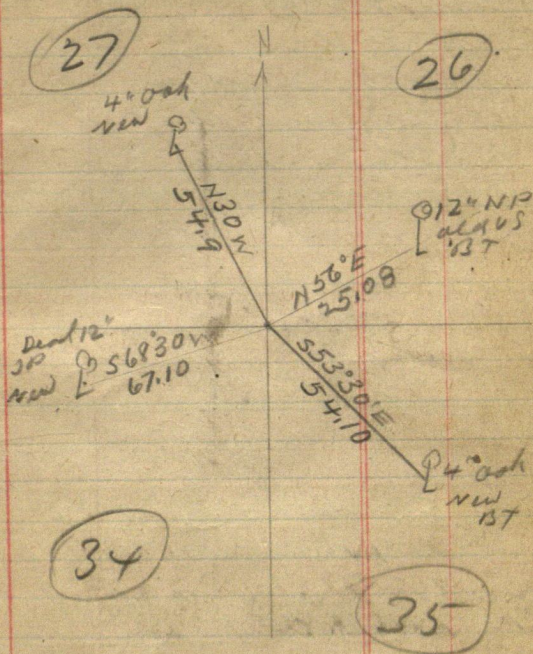 27
N
26
4" Oak
New
N30W
54.9
12" NP
old US
BT
N56°E
25.08
Dead 12"
JP
New
S68°30W
67.10
S53°30'E
54.10
4" Oak
New
BT
34
35